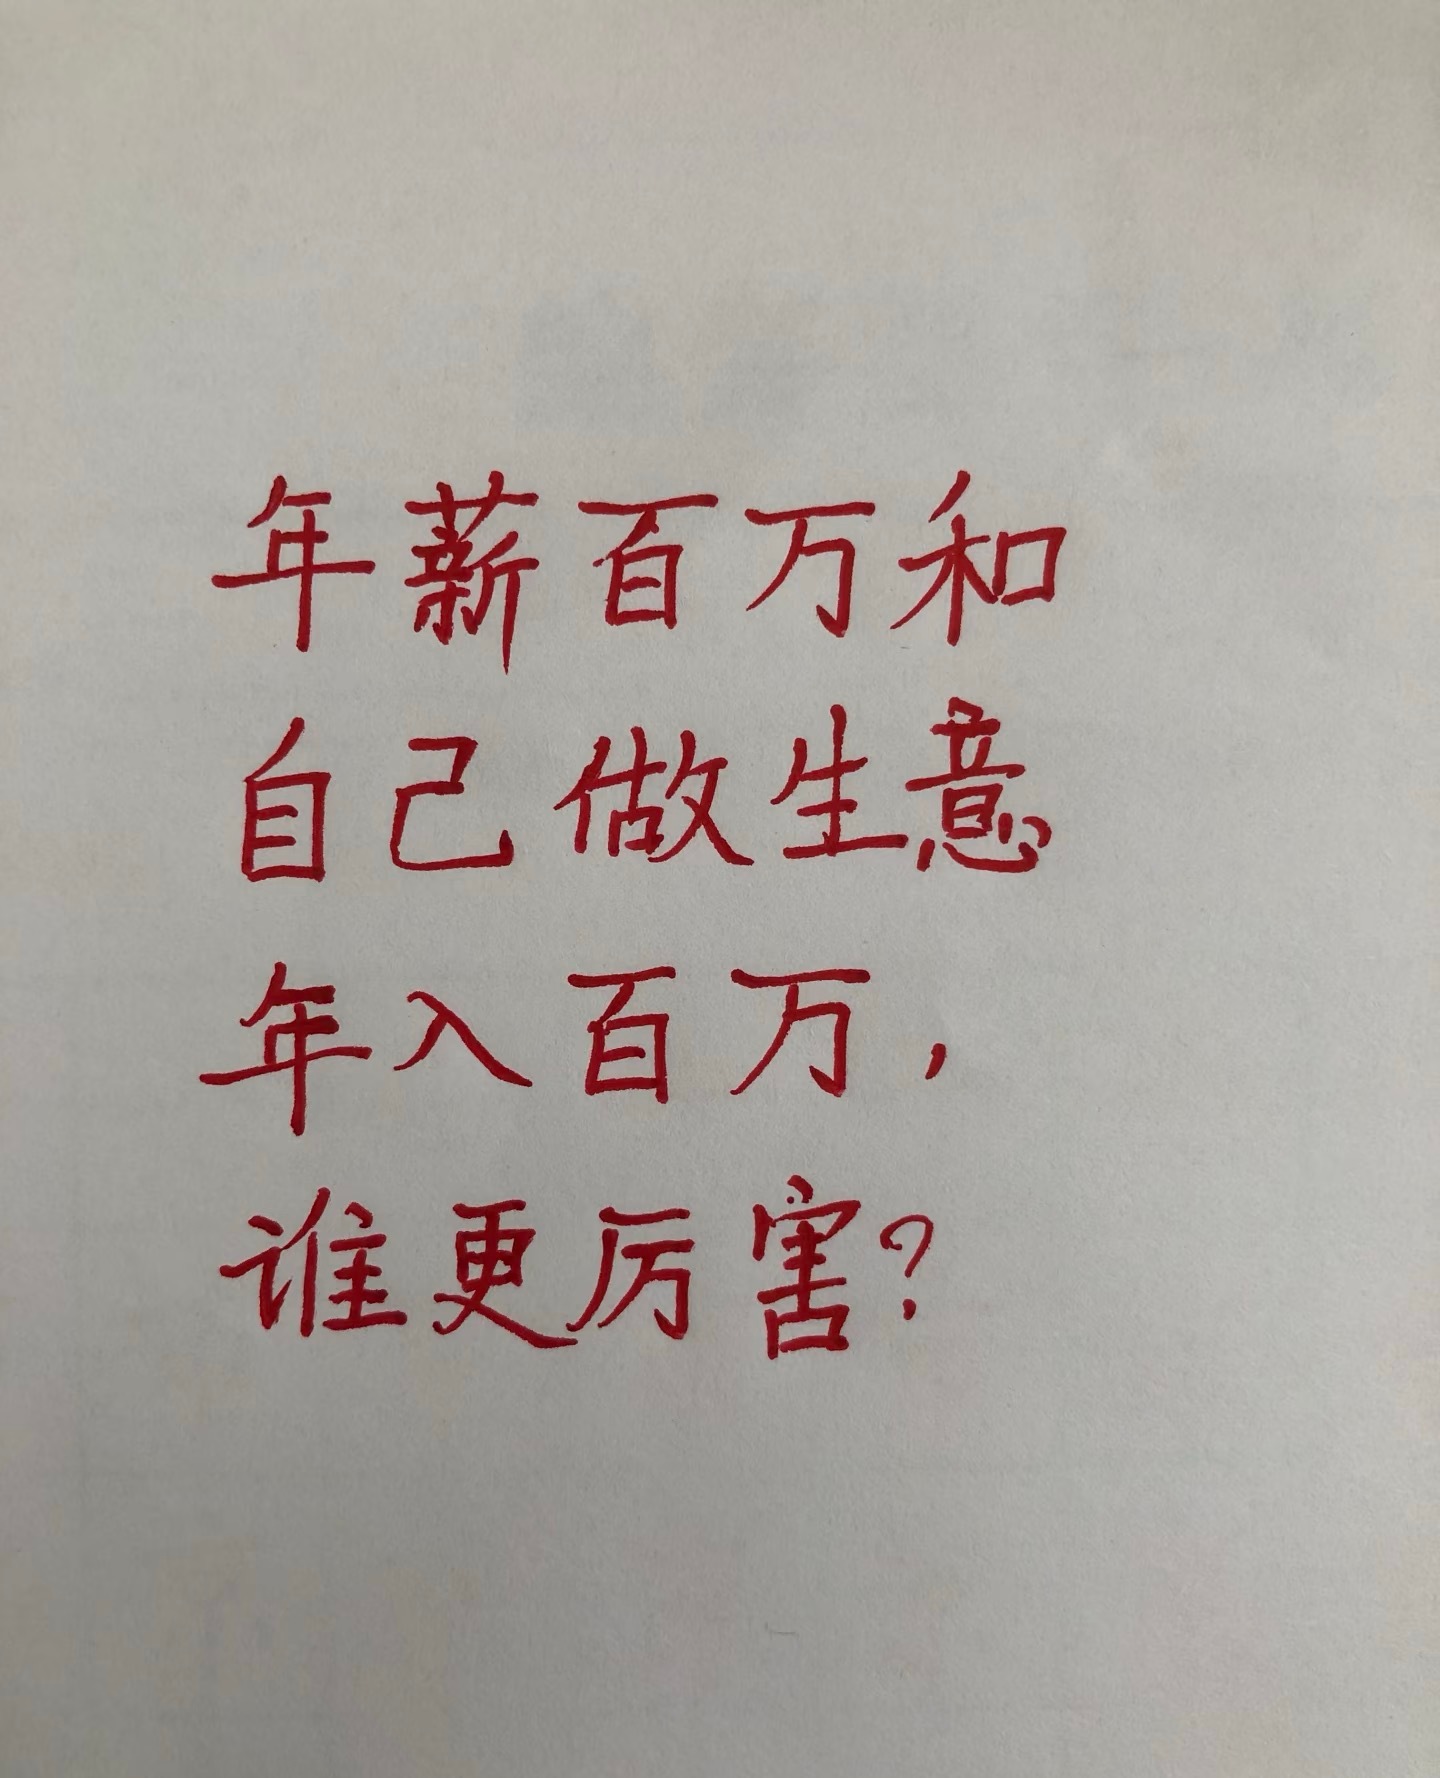 年薪百万和
自己做生意
年入百万，
谁更厉害？